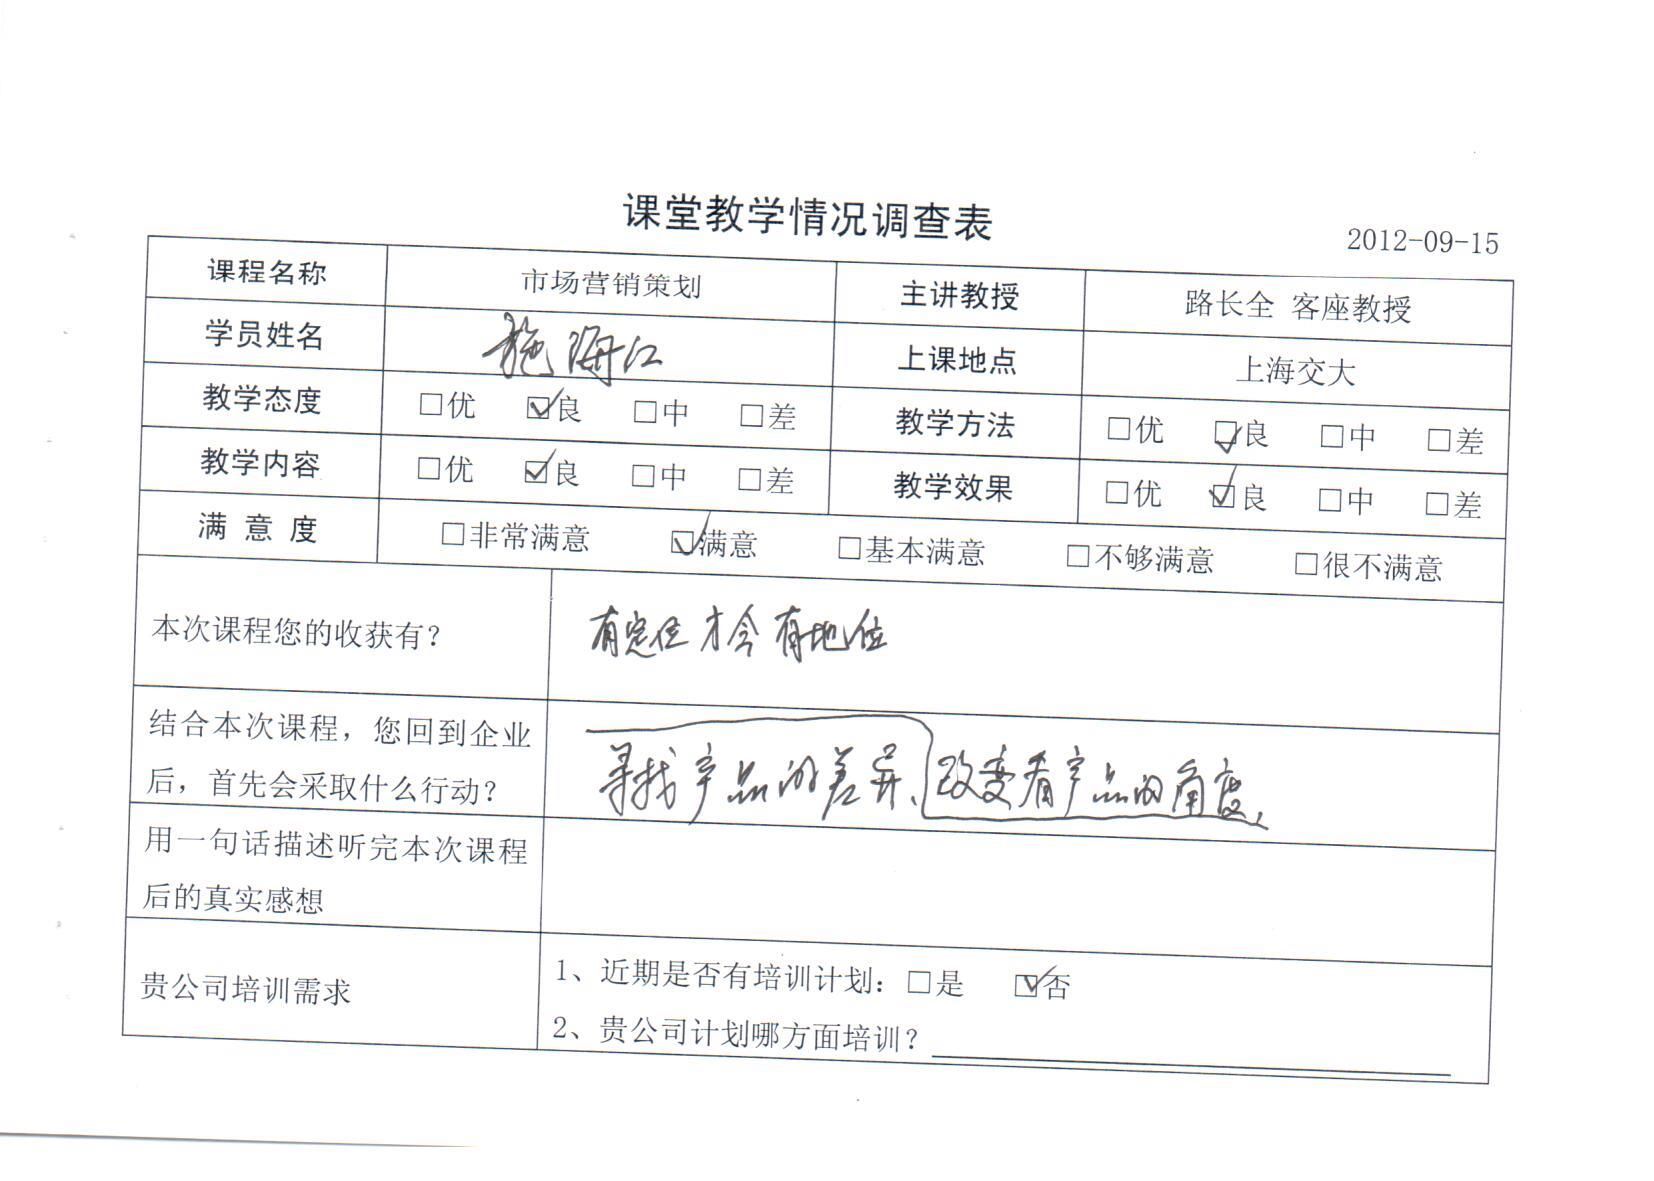 课堂教学情况调查表
2012-09-15
课程名称 市场营销策划 主讲教授 路长全 客座教授
学员姓名 施海江 上课地点 上海交大
教学态度 □优 ☑良 □中 □差 教学方法 □优 ☑良 □中 □差
教学内容 □优 ☑良 □中 □差 教学效果 □优 ☑良 □中 □差
满 意 度 □非常满意 ☑满意 □基本满意 □不够满意 □很不满意
本次课程您的收获有？ 有定位才会有地位
结合本次课程，您回到企业
后，首先会采取什么行动？ 寻找产品的差异、改变看产品的角度、
用一句话描述听完本次课程
后的真实感想
贵公司培训需求
1、近期是否有培训计划：□是 ☑否
2、贵公司计划哪方面培训？